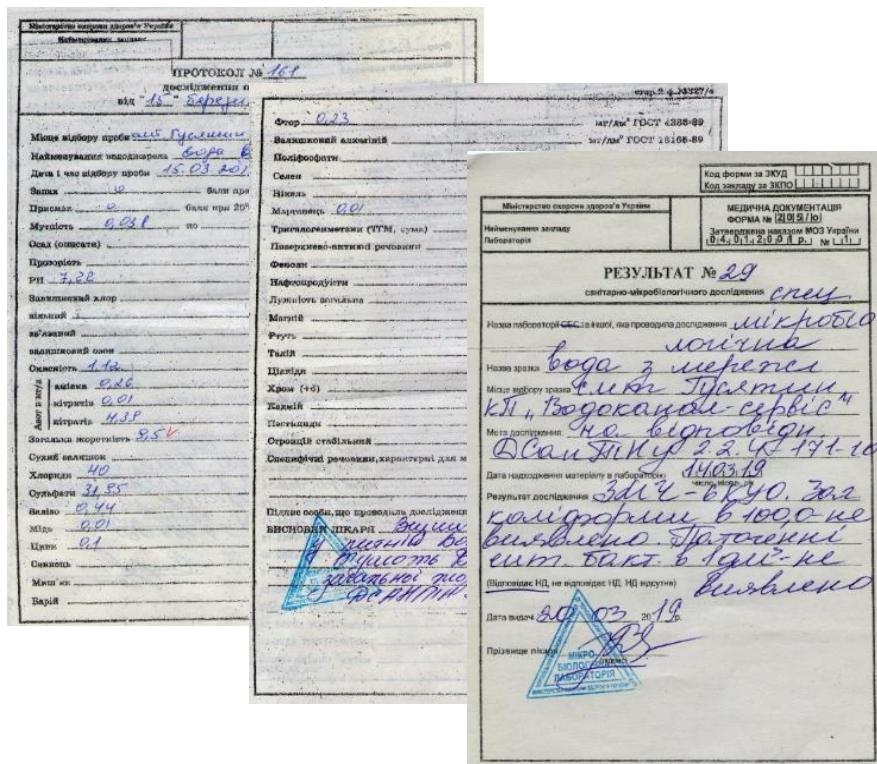 Міністерство охорони здоров'я України
Найменування закладу
ПРОТОКОЛ № 161
дослідження
від "15" березня
Місце відбору проби смт Гусятин
Найменування вододжерела вода
Дата і час відбору проби 15.03.201
Запах 0 бали при
Присмак 0 бали при 20°
Мутність 0,038 по
Осад (описати)
Прозорість
РН 7,22
Залишковий хлор
вільний
зв'язаний
залишковий озон
Окисність 1,12
Азот в мг/л
аміака 0,26
нітритів 0,01
нітратів 4,38
Загальна жорсткість 9,5 V
Сухий залишок
Хлориди 40
Сульфати 31,95
Залізо 0,44
Мідь 0,01
Цинк 0,1
Свинець
Миш'як
Барій
стор.2 ф.№327/о
Фтор 0,23 мг/дм³ ГОСТ 4386-89
Залишковий алюміній мг/дм³ ГОСТ 18165-89
Поліфосфати
Селен
Нікель
Марганець 0,01
Тригалогенметани (ТГМ, сума)
Поверхнево-активні речовини
Феноли
Нафтопродукти
Лужність загальна
Магній
Ртуть
Талій
Ціаніди
Хром (+6)
Кадмій
Пестициди
Стронцій стабільний
Специфічні речовини, характерні для м
Підпис особи, що проводила дослідження
ВИСНОВОК ЛІКАРЯ
загальної
ДСАНПІН
Код форми за ЗКУД
Код закладу за ЗКПО
Міністерство охорони здоров'я України
Найменування закладу
Лабораторія
МЕДИЧНА ДОКУМЕНТАЦІЯ
ФОРМА № 205/о
Затверджена наказом МОЗ України
04.01.2001 р. № 1
РЕЗУЛЬТАТ № 29
санітарно-мікробіологічного дослідження спец
Назва лабораторії СЕС та іншої, яка проводила дослідження мікробіо
логічна
Назва зразка вода з мережі
Місце відбору зразка смт Гусятин
КП "Водоканал-сервіс"
Мета дослідження: на відповідн
ДСанПіНу 2.2.4-171-10
Дата надходження матеріалу в лабораторію 14.03.19
число, місяць, рік
Результат дослідження ЗМЧ-6 КУО. Заг
коліформи в 100,0-не
виявлено. Патогенні
киш. бакт. в 1 дм³-не
(Відповідає НД, не відповідає НД, НД відсутня) виявлено
Дата видачі 20 03 2019р.
Прізвище лікаря
підпис
МІКРО-
БІОЛОГІЧНА
ЛАБОРАТОРІЯ